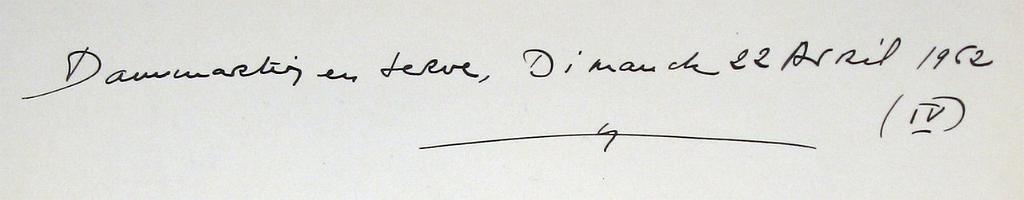 Dammartin en serve, Dimanch 22 Avril 1962
(IV)